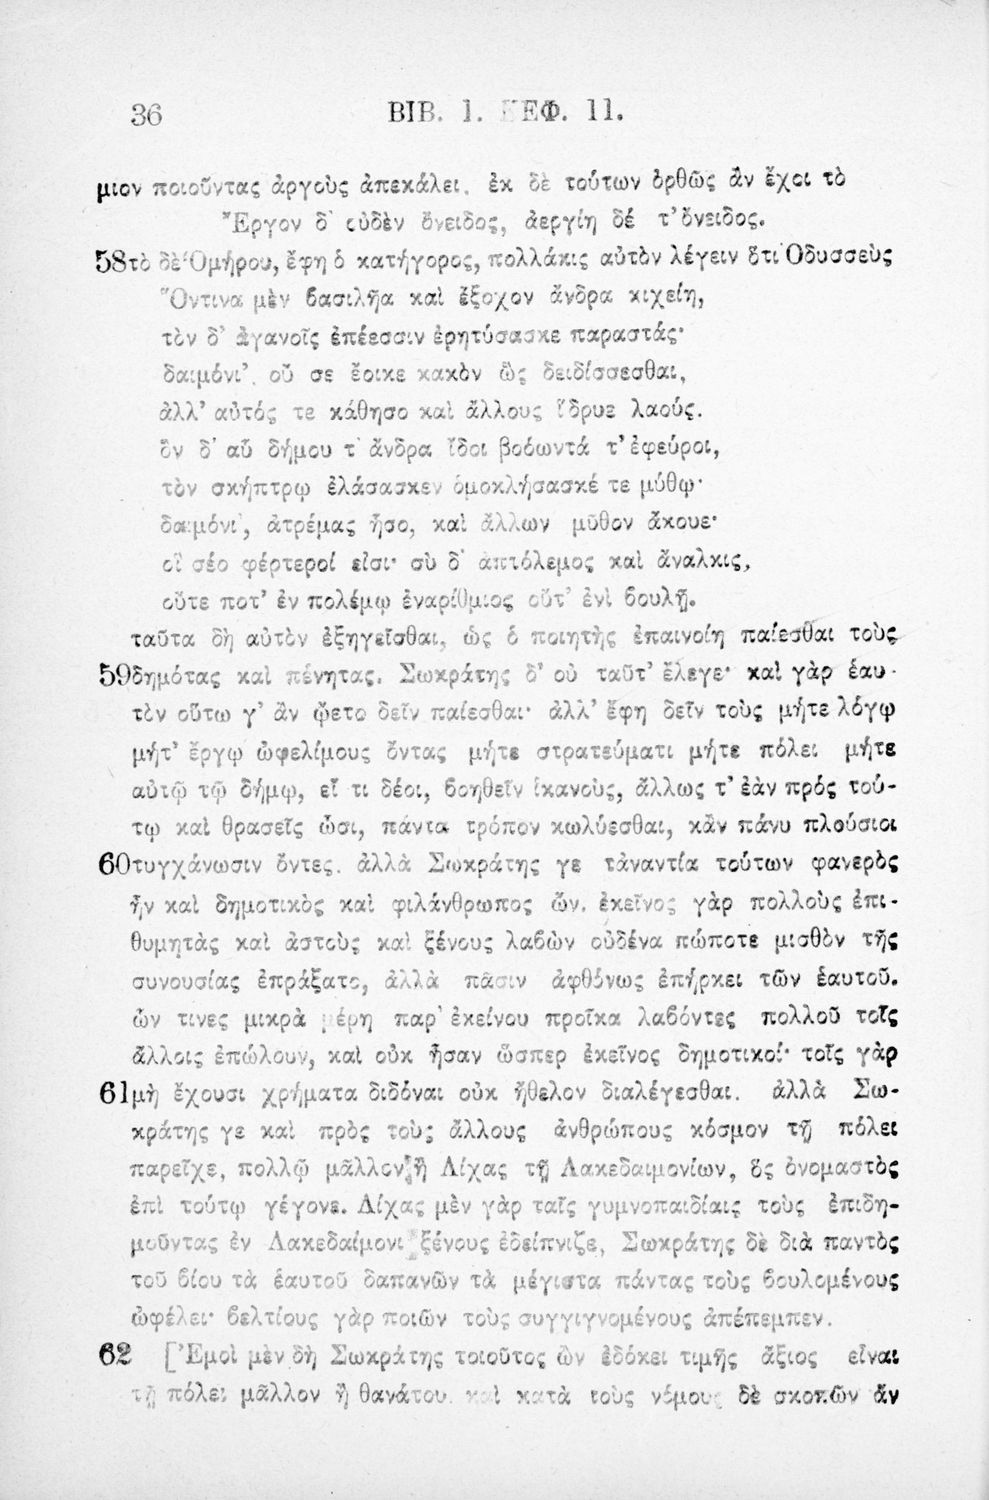 36 ΒΙΒ. 1. ΚΕΦ. 11.
μιον ποιοῦντας ἀργοὺς ἀπεκάλει. ἐκ δὲ τούτων ὀρθῶς ἂν ἔχοι τὸ
Ἔργον δ' οὐδὲν ὄνειδος, ἀεργίη δέ τ' ὄνειδος.
58 τὸ δὲ Ὁμήρου, ἔφη ὁ κατήγορος, πολλάκις αὐτὸν λέγειν ὅτι Ὀδυσσεὺς
Ὅντινα μὲν βασιλῆα καὶ ἔξοχον ἄνδρα κιχείη,
τὸν δ' ἀγανοῖς ἐπέεσσιν ἐρητύσασκε παραστάς·
δαιμόνι'. οὔ σε ἔοικε κακὸν ὣς δειδίσσεσθαι,
ἀλλ' αὐτός τε κάθησο καὶ ἄλλους ἵδρυε λαούς.
ὃν δ' αὖ δήμου τ' ἄνδρα ἴδοι βοόωντά τ' ἐφεύροι,
τὸν σκήπτρῳ ἐλάσασκεν ὁμοκλήσασκέ τε μύθῳ·
δαιμόνι', ἀτρέμας ἧσο, καὶ ἄλλων μῦθον ἄκουε·
οἳ σέο φέρτεροί εἰσι· σὺ δ' ἀπτόλεμος καὶ ἄναλκις,
οὔτε ποτ' ἐν πολέμῳ ἐναρίθμιος οὔτ' ἐνὶ βουλῇ.
ταῦτα δὴ αὐτὸν ἐξηγεῖσθαι, ὡς ὁ ποιητὴς ἐπαινοίη παίεσθαι τοὺς
59 δημότας καὶ πένητας. Σωκράτης δ' οὐ ταῦτ' ἔλεγε· καὶ γὰρ ἑαυ-
τὸν οὕτω γ' ἂν ᾤετο δεῖν παίεσθαι· ἀλλ' ἔφη δεῖν τοὺς μήτε λόγῳ
μήτ' ἔργῳ ὠφελίμους ὄντας μήτε στρατεύματι μήτε πόλει μήτε
αὐτῷ τῷ δήμῳ, εἴ τι δέοι, βοηθεῖν ἱκανοὺς, ἄλλως τ' ἐὰν πρός τού-
τῳ καὶ θρασεῖς ὦσι, πάντα τρόπον κωλύεσθαι, κἂν πάνυ πλούσιοι
60 τυγχάνωσιν ὄντες. ἀλλὰ Σωκράτης γε τἀναντία τούτων φανερὸς
ἦν καὶ δημοτικὸς καὶ φιλάνθρωπος ὤν. ἐκεῖνος γὰρ πολλοὺς ἐπι-
θυμητὰς καὶ ἀστοὺς καὶ ξένους λαβὼν οὐδένα πώποτε μισθὸν τῆς
συνουσίας ἐπράξατο, ἀλλὰ πᾶσιν ἀφθόνως ἐπήρκει τῶν ἑαυτοῦ.
ὧν τινες μικρὰ μέρη παρ' ἐκείνου προῖκα λαβόντες πολλοῦ τοῖς
ἄλλοις ἐπώλουν, καὶ οὐκ ἦσαν ὥσπερ ἐκεῖνος δημοτικοί· τοῖς γὰρ
61 μὴ ἔχουσι χρήματα διδόναι οὐκ ἤθελον διαλέγεσθαι. ἀλλὰ Σω-
κράτης γε καὶ πρὸς τοὺς ἄλλους ἀνθρώπους κόσμον τῇ πόλει
παρεῖχε, πολλῷ μᾶλλον ἢ Λίχας τῇ Λακεδαιμονίων, ὃς ὀνομαστὸς
ἐπὶ τούτῳ γέγονε. Λίχας μὲν γὰρ ταῖς γυμνοπαιδίαις τοὺς ἐπιδη-
μοῦντας ἐν Λακεδαίμονι ξένους ἐδείπνιζε, Σωκράτης δὲ διὰ παντὸς
τοῦ βίου τὰ ἑαυτοῦ δαπανῶν τὰ μέγιστα πάντας τοὺς βουλομένους
ὠφέλει· βελτίους γὰρ ποιῶν τοὺς συγγιγνομένους ἀπέπεμπεν.
62 [Ἐμοὶ μὲν δὴ Σωκράτης τοιοῦτος ὢν ἐδόκει τιμῆς ἄξιος εἶναι
τῇ πόλει μᾶλλον ἢ θανάτου. καὶ κατὰ τοὺς νόμους δὲ σκοπῶν ἄν